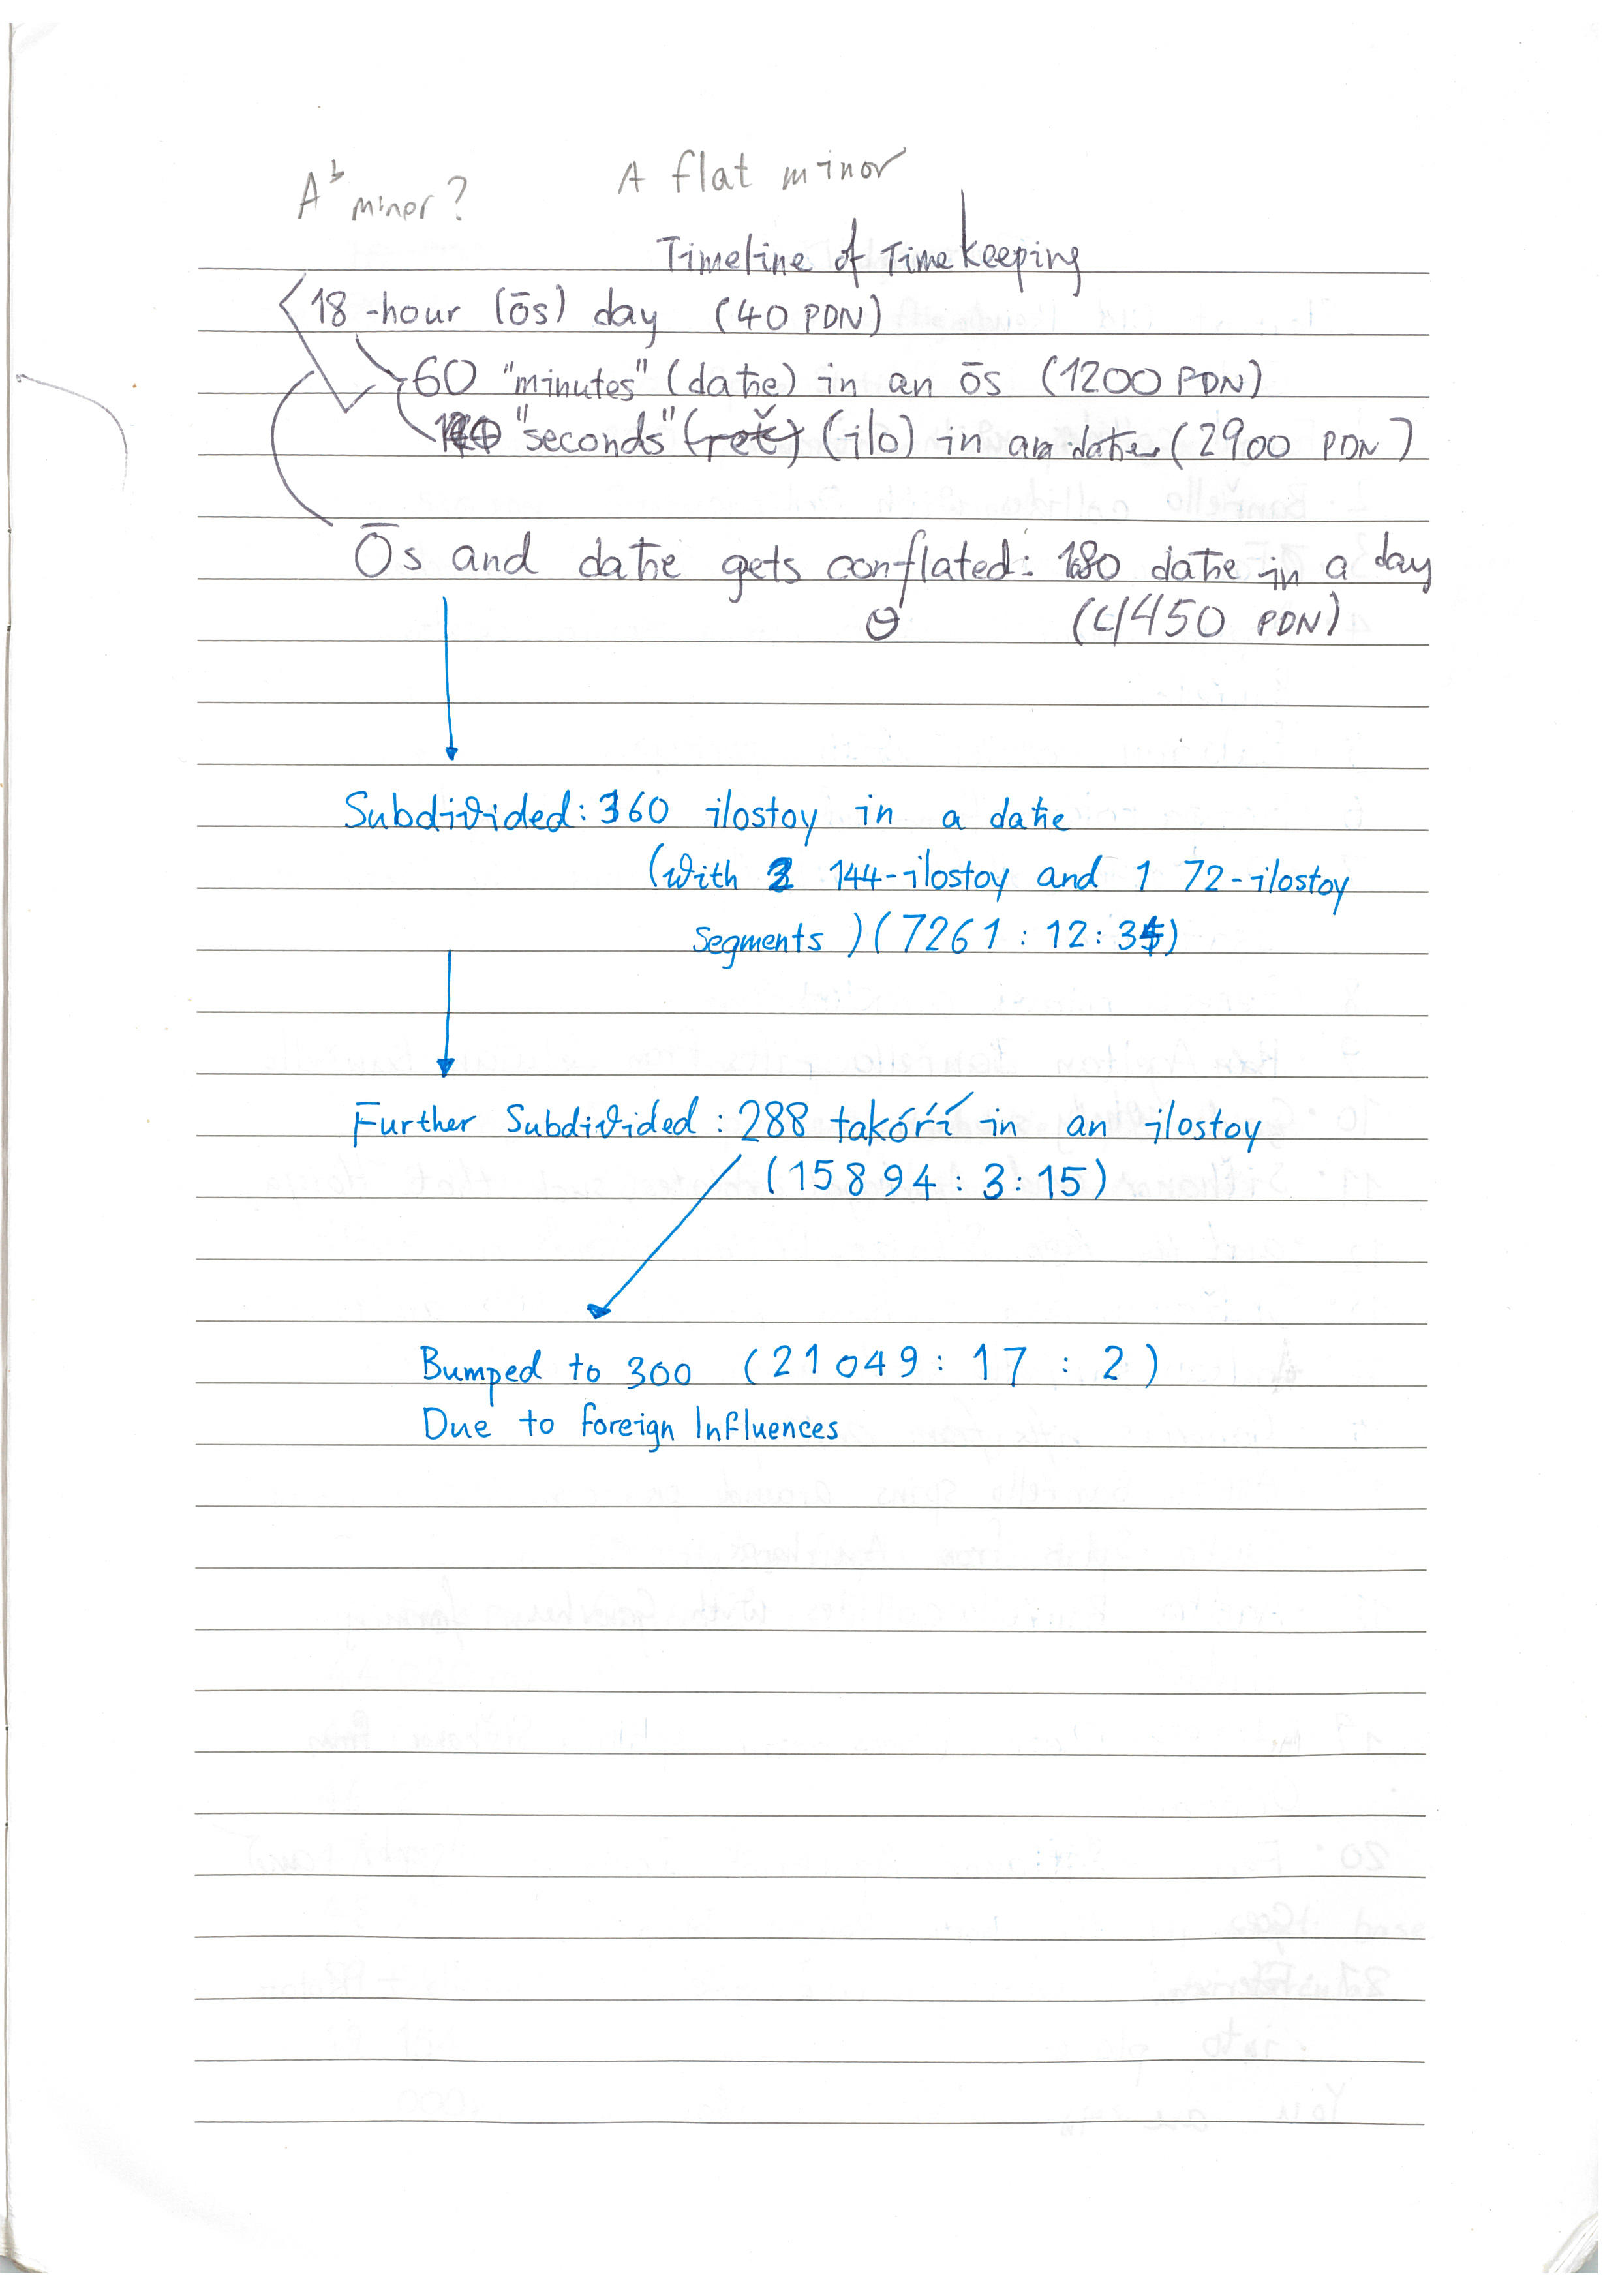 A♭ minor? A flat minor
Timeline of Timekeeping
18-hour (ōs) day (40 PDN)
60 "minutes" (datħe) in an ōs (1200 PDN)
"seconds" (ilo) in a datħe (2900 PDN)
Ōs and datħe gets conflated: 180 datħe in a day
(4450 PDN)
Subdivided: 360 ilostoy in a datħe
(with 2 144-ilostoy and 1 72-ilostoy
segments) (7261:12:34)
Further Subdivided: 288 takórí in an ilostoy
(15894:3:15)
Bumped to 300 (21049:17:2)
Due to foreign Influences